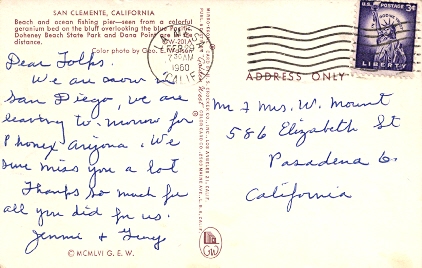 SAN CLEMENTE, CALIFORNIA
Beach and ocean fishing pier—seen from a colorful
geranium bed on the bluff overlooking the blue Pacific.
Doheney Beach State Park and Dana Point are in the
distance.
Color photo by Geo. E. Watson
FEB
7 30 AM
1960
CALIF.
U.S. POSTAGE
3¢
LIBERTY
ADDRESS ONLY
Dear Folks.
We are now in
San Diego, we are
leaving to-morrow for
Phonex Arizona. We
sure miss you a lot
Thanks so much for
all you did for us.
Jennie +
Mr & Mrs. W. Mount
586 Elizabeth St
Pasadena 6.
California
© MCMLVI G. E. W.
GW